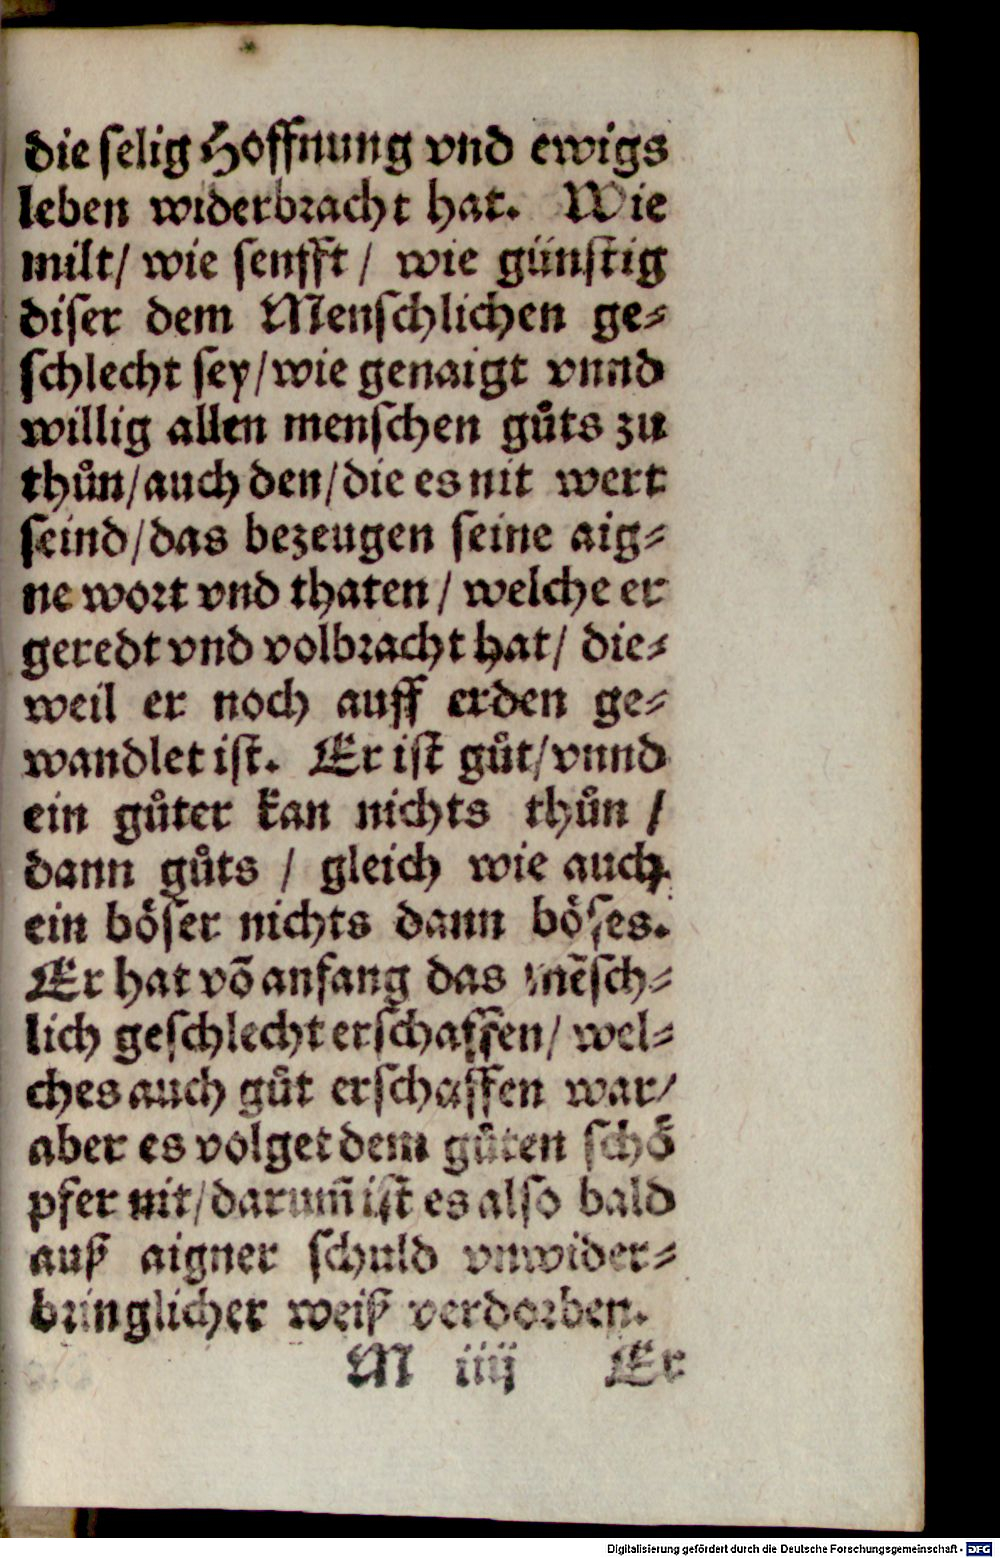 die selig Hoffnung vnd ewigs
leben widerbracht hat. Wie
milt/ wie senfft / wie günstig
diser dem Menschlichen ge⸗
schlecht sey/wie genaigt vnnd
willig allen menschen gůts zu
thůn/auch den/die es nit wert
seind/das bezeugen seine aig⸗
ne wort vnd thaten/ welche er
geredt vnd volbracht hat/ die⸗
weil er noch auff erden ge⸗
wandlet ist. Er ist gůt/vnnd
ein gůter kan nichts thůn /
dann gůts / gleich wie auch
ein böser nichts dann böses.
Er hat võ anfang das mẽsch⸗
lich geschlecht erschaffen/ wel⸗
ches auch gůt erschaffen war/
aber es volget dem gůten schö
pfer nit/darum̃ ist es also bald
auß aigner schuld vnwider⸗
bringlicher weiß verdorben.
M iiij Er
Digitalisierung gefördert durch die Deutsche Forschungsgemeinschaft - DFG